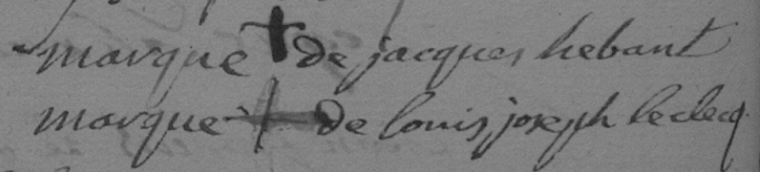 marque + de jacques hebant
marque + de louis joseph leclecq